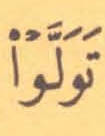 تَوَلَّوۡاْ